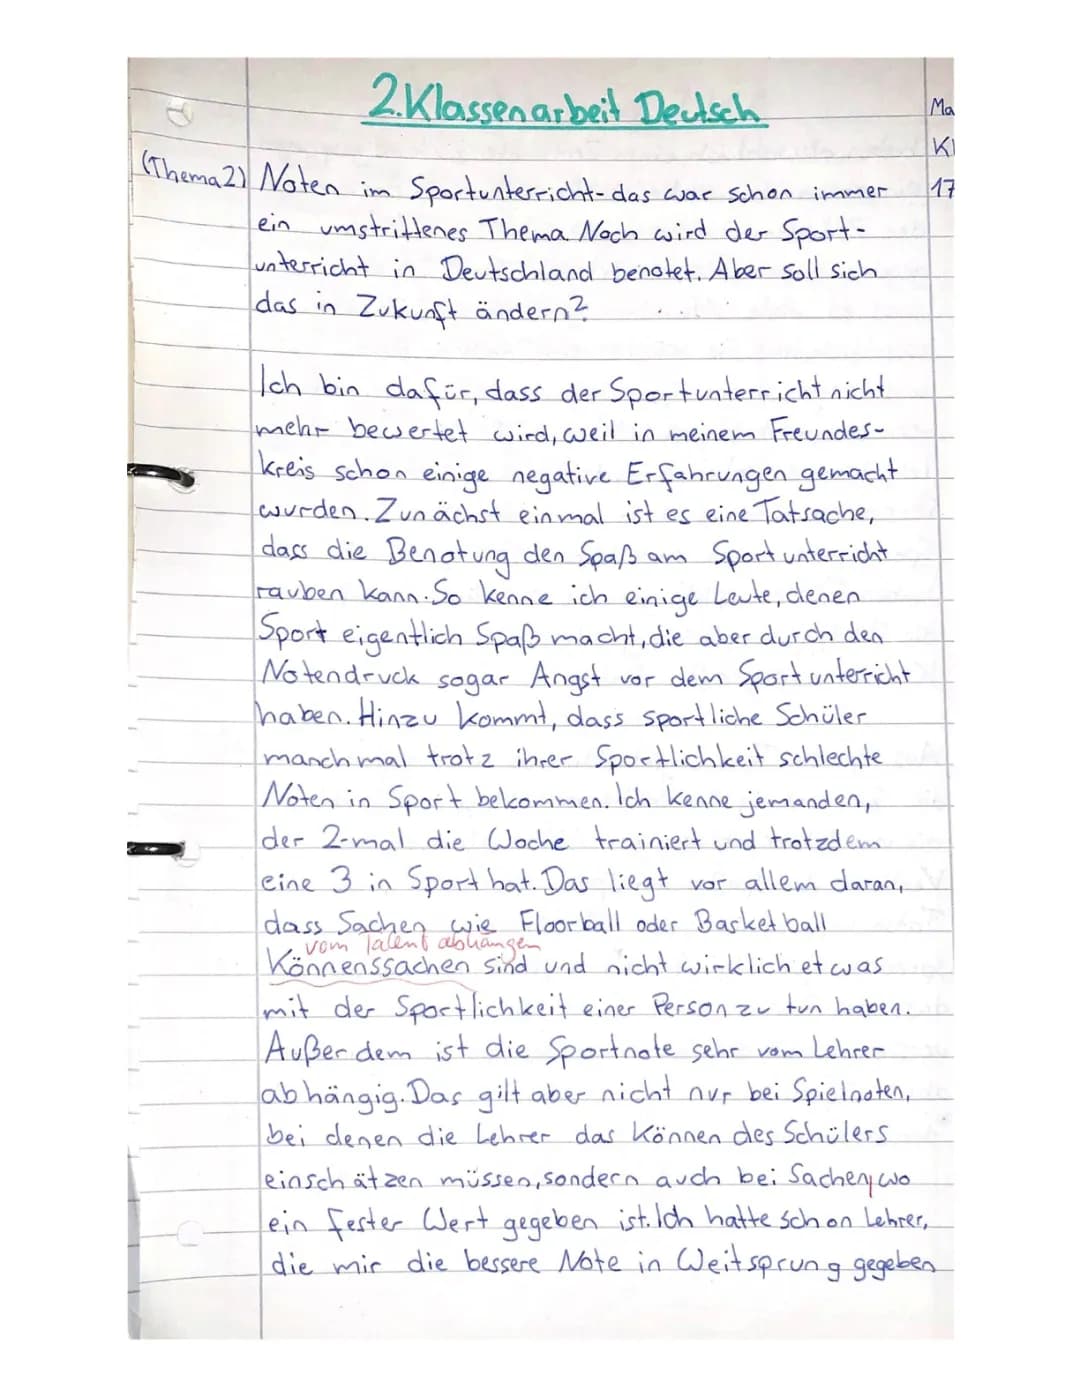 2. Klassenarbeit Deutsch
Ma
Kl
17
(Thema 2) Noten im Sportunterricht - das war schon immer
ein umstrittenes Thema. Noch wird der Sport-
unterricht in Deutschland benotet. Aber soll sich
das in Zukunft ändern?
Ich bin dafür, dass der Sportunterricht nicht
mehr bewertet wird, weil in meinem Freundes-
kreis schon einige negative Erfahrungen gemacht
wurden. Zunächst einmal ist es eine Tatsache,
dass die Benotung den Spaß am Sportunterricht
rauben kann. So kenne ich einige Leute, denen
Sport eigentlich Spaß macht, die aber durch den
Notendruck sogar Angst vor dem Sportunterricht
haben. Hinzu kommt, dass sportliche Schüler
manchmal trotz ihrer Sportlichkeit schlechte
Noten in Sport bekommen. Ich kenne jemanden,
der 2-mal die Woche trainiert und trotzdem
eine 3 in Sport hat. Das liegt vor allem daran,
dass Sachen wie Floorball oder Basketball
vom Talent abhängen
Könnenssachen sind und nicht wirklich etwas
mit der Sportlichkeit einer Person zu tun haben.
Außerdem ist die Sportnote sehr vom Lehrer
abhängig. Das gilt aber nicht nur bei Spielnoten,
bei denen die Lehrer das Können des Schülers
einschätzen müssen, sondern auch bei Sachen, wo
ein fester Wert gegeben ist. Ich hatte schon Lehrer,
die mir die bessere Note in Weitsprung gegeben